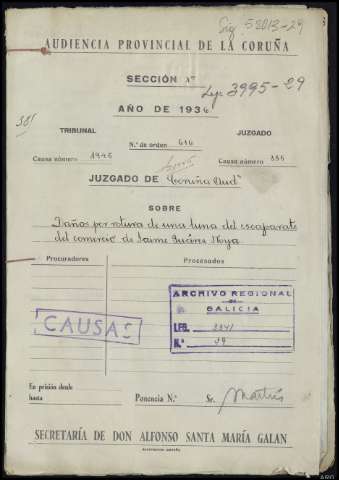 Sig 53013-29
AUDIENCIA PROVINCIAL DE LA CORUÑA
SECCIÓN 1ª
Leg. 3995-29
AÑO DE 1936
381
TRIBUNAL JUZGADO
N.º de orden 616
Causa número 1946 Causa número 355
JUZGADO DE Coruña Audª
SOBRE
Daños por rotura de una luna del escaparate
del comercio de Jaime Suárez Moya
Procuradores Procesados
ARCHIVO REGIONAL
DE
GALICIA
LEG. 2341
N.º 29
CAUSAS
En prisión desde
hasta Ponencia N.º Sr.
SECRETARÍA DE DON ALFONSO SANTA MARÍA GALAN